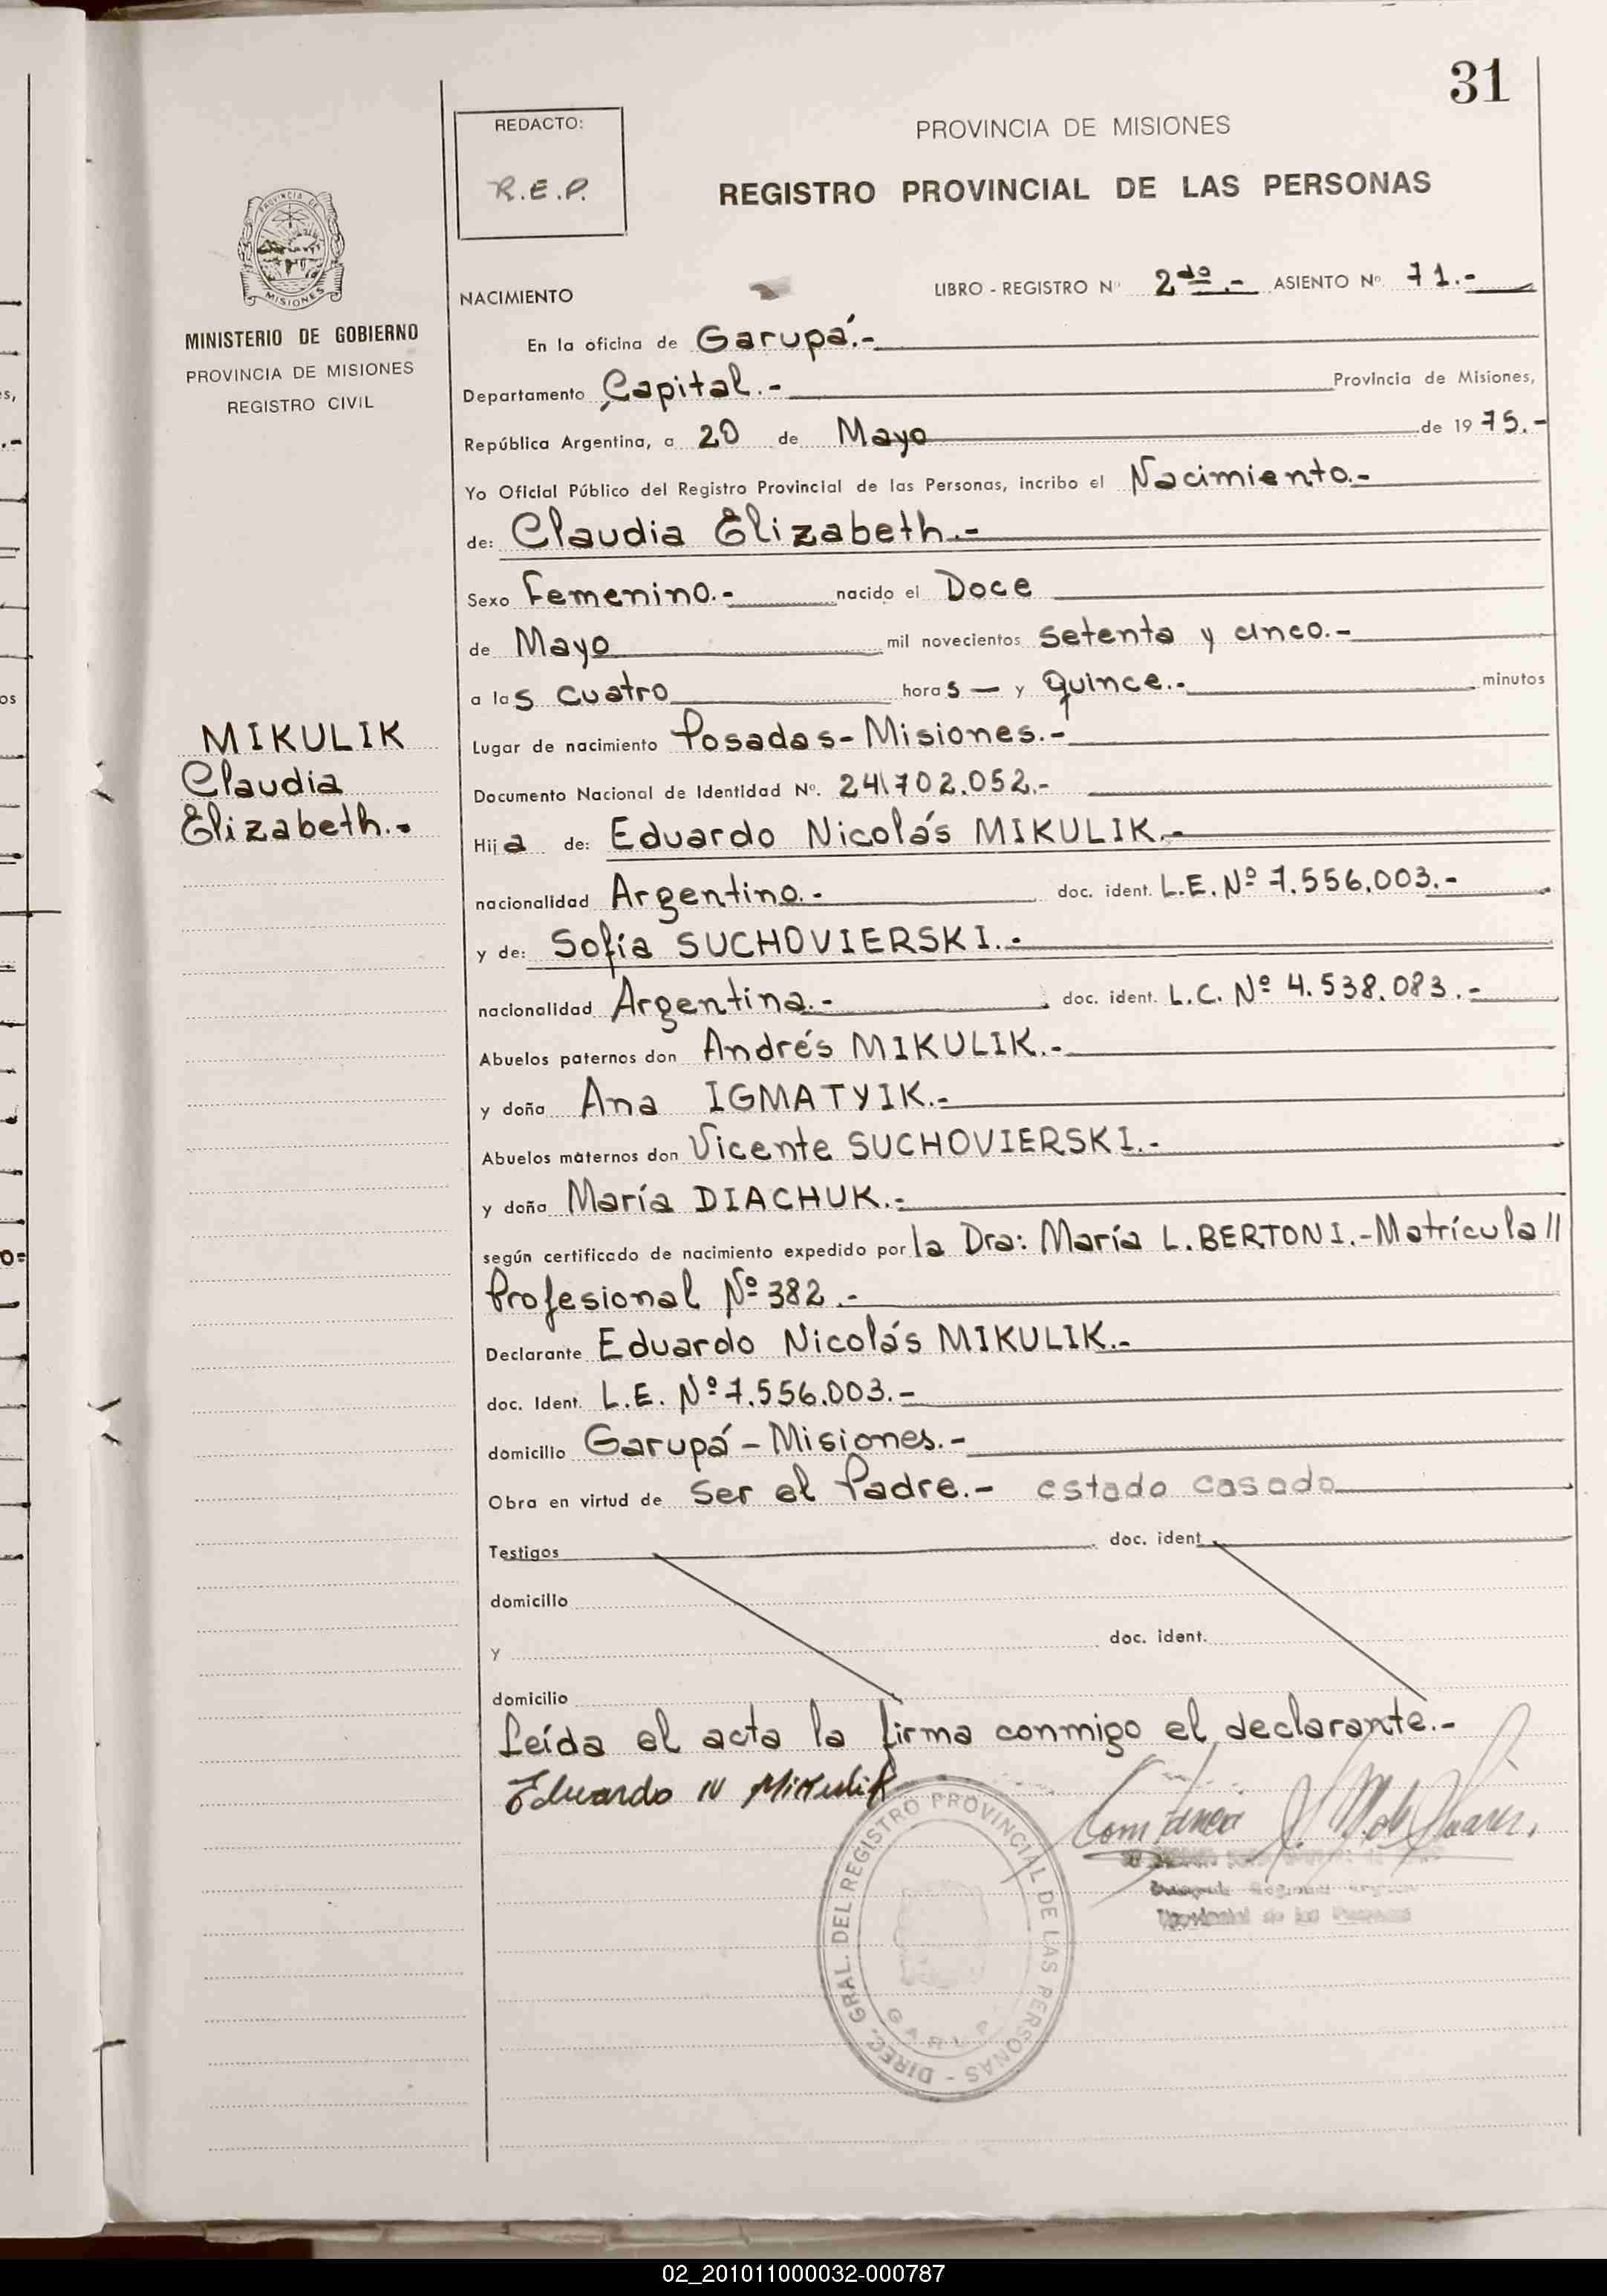 31
REDACTO:
R.E.P.
PROVINCIA DE MISIONES
REGISTRO PROVINCIAL DE LAS PERSONAS
PROVINCIA DE
MISIONES
MINISTERIO DE GOBIERNO
PROVINCIA DE MISIONES
REGISTRO CIVIL
NACIMIENTO LIBRO - REGISTRO Nº 2do.- ASIENTO Nº 71.-
En la oficina de Garupá.-
Departamento Capital.- Provincia de Misiones,
República Argentina, a 20 de Mayo de 1975.-
Yo Oficial Público del Registro Provincial de las Personas, incribo el Nacimiento.-
de: Claudia Elizabeth.-
Sexo Femenino.- nacido el Doce
de Mayo mil novecientos setenta y cinco.-
a las cuatro horas — y quince.- minutos
MIKULIK
Claudia
Elizabeth.-
Lugar de nacimiento Posadas-Misiones.-
Documento Nacional de Identidad Nº. 24\702.052.-
Hija de: Eduardo Nicolás MIKULIK.-
nacionalidad Argentino.- doc. ident. L.E. Nº 7.556.003.-
y de: Sofía SUCHOVIERSKI.-
nacionalidad Argentina.- doc. ident. L.C. Nº 4.538.083.-
Abuelos paternos don Andrés MIKULIK.-
y doña Ana IGMATYIK.-
Abuelos maternos don Vicente SUCHOVIERSKI.-
y doña María DIACHUK.-
según certificado de nacimiento expedido por la Dra: María L. BERTONI.-Matrícula//
Profesional Nº 382.-
Declarante Eduardo Nicolás MIKULIK.-
doc. Ident. L.E. Nº 7.556.003.-
domicilio Garupá-Misiones.-
Obra en virtud de ser el Padre.- estado casado
Testigos doc. ident
domicilio
y doc. ident.
domicilio
Leída el acta la firma conmigo el declarante.-
Eduardo N Mikulik
DIREC. GRAL. DEL REGISTRO PROVINCIAL DE LAS PERSONAS -
02_201011000032-000787